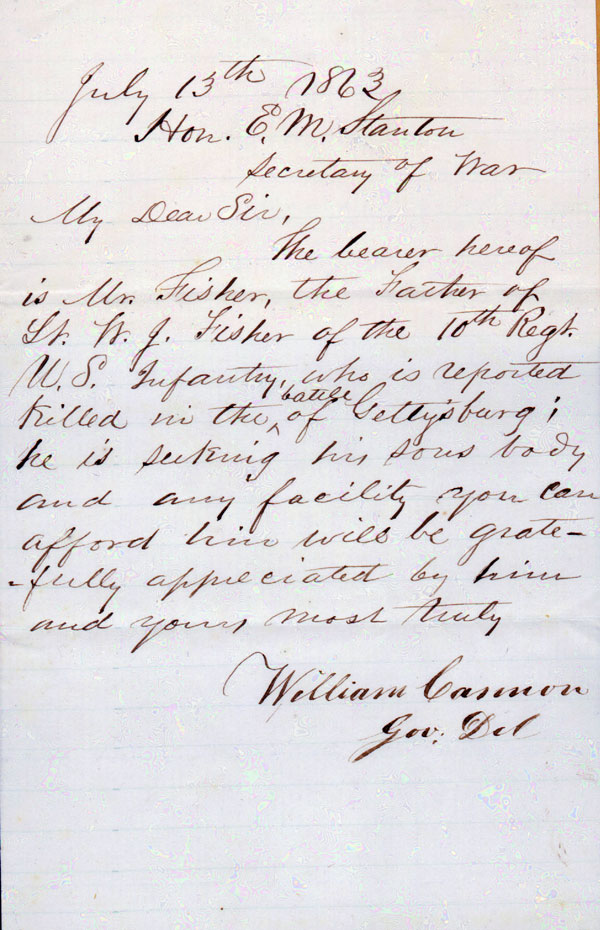 July 13th 1863
Hon. E. M. Stanton
Secretary of War
My Dear Sir,
The bearer hereof
is Mr. Fisher, the Father of
Lt. W. J. Fisher of the 10th Regt.
U. S. Infantry, who is reported
killed in the battle of Gettysburg;
he is seeking his sons body
and any facility you can
afford him will be grate-
-fully appreciated by him
and yours most truly
William Cannon
Gov. Del